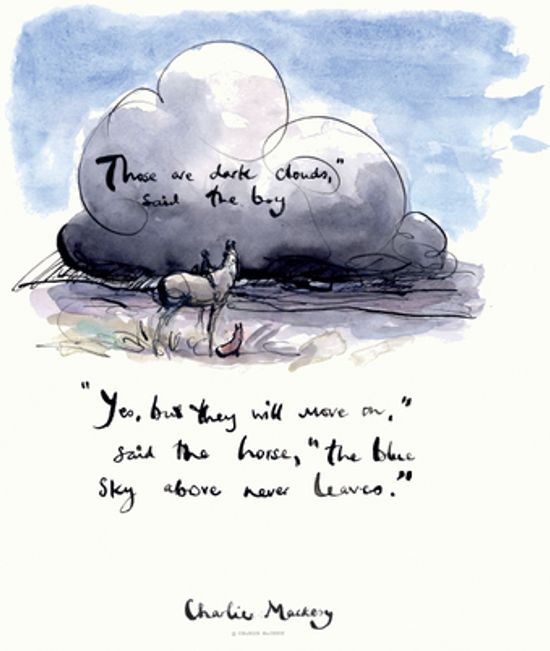 Those are dark clouds,"
said the boy
"Yes, but they will move on,"
said the horse, "the blue
sky above never leaves."
Charlie Mackesy
© CHARLIE MACKESY